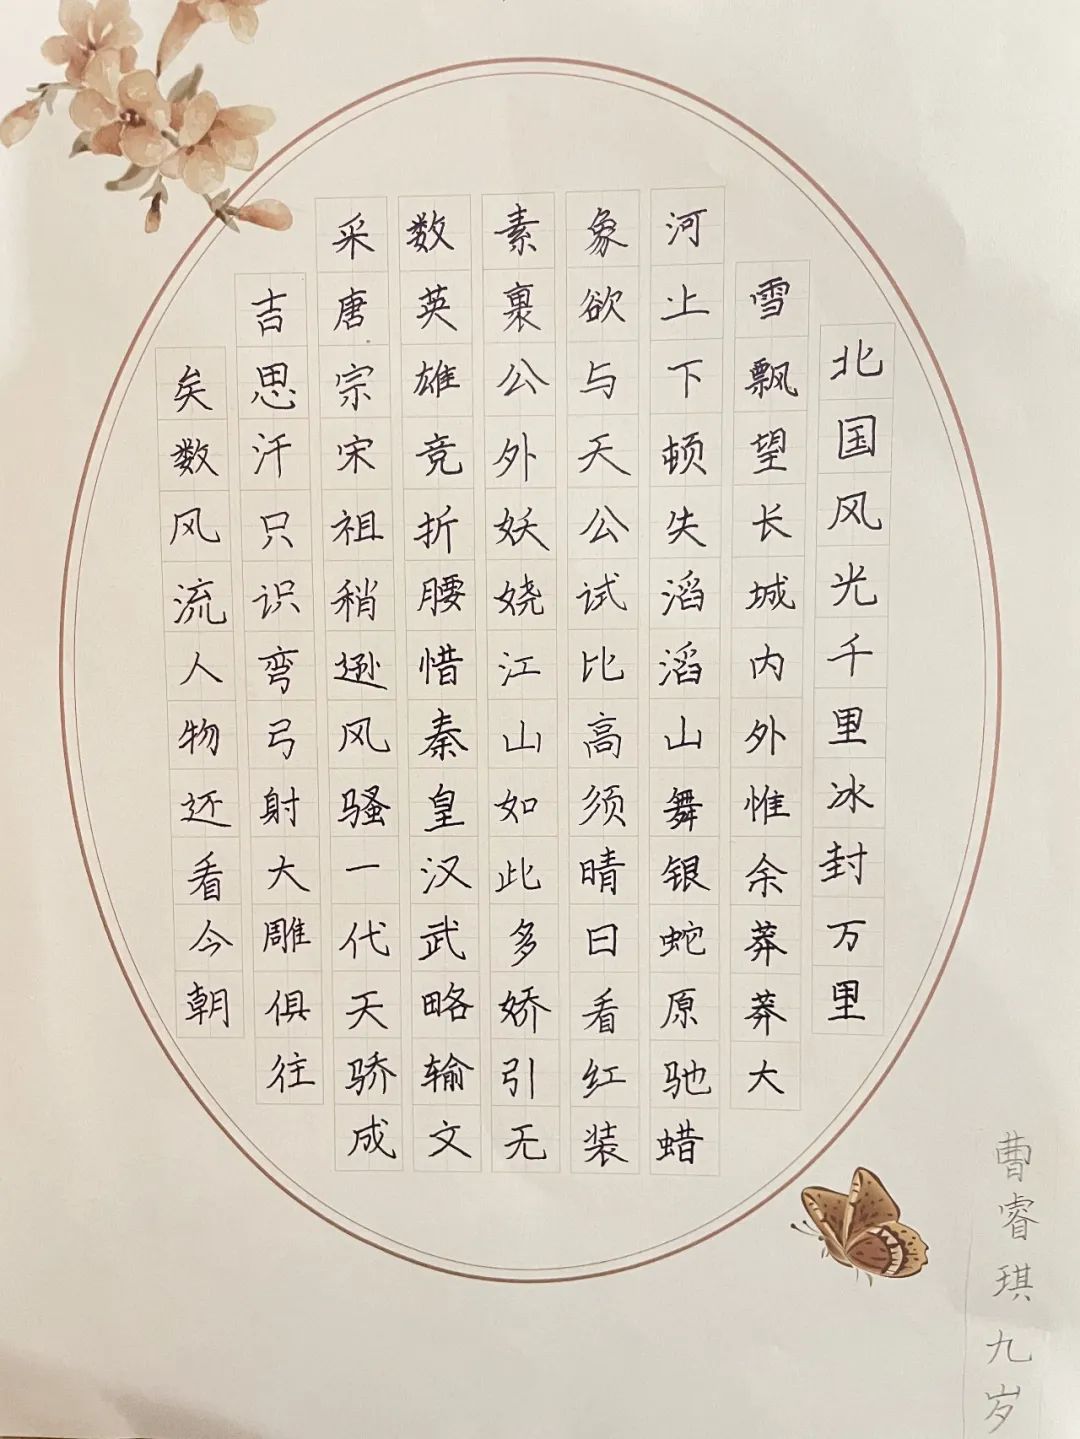 北国风光千里冰封万里
雪飘望长城内外惟余莽莽大
河上下顿失滔滔山舞银蛇原驰蜡
象欲与天公试比高须晴日看红装
素裹公外妖娆江山如此多娇引无
数英雄竞折腰惜秦皇汉武略输文
采唐宗宋祖稍逊风骚一代天骄成
吉思汗只识弯弓射大雕俱往
矣数风流人物还看今朝
曹睿琪九岁